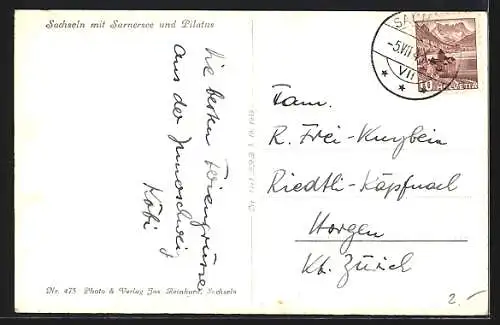 Sachseln mit Sarnersee und Pilatus
Die besten Feriengrüsse
aus der Innerschweiz
Köbi
Nr. 473 Photo & Verlag Jos. Reinhard, Sachseln
-5.VII.4
VII
10
HELVETIA
Fam.
R. Frei-Knybein
Riedtli-Käpfnach
Horgen
Kt. Zürich
2.-